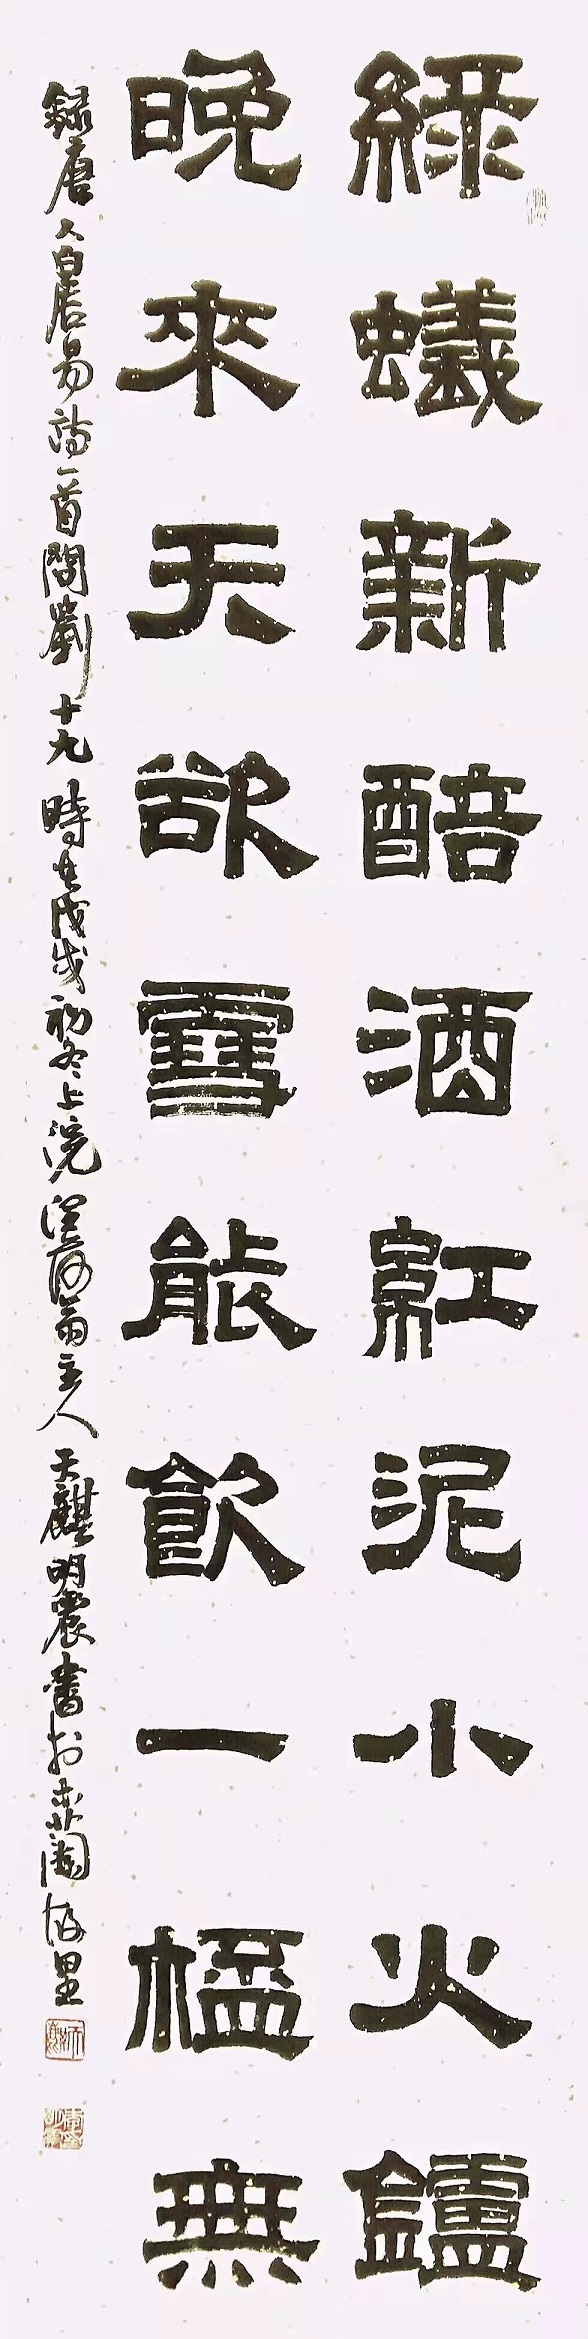 綠蟻新醅酒紅泥小火鑪
晚來天欲雪能飲一杯無
錄唐人白居易詩一首問劉十九時在戊戌初冬上浣主人天麒明震書於蘭故里